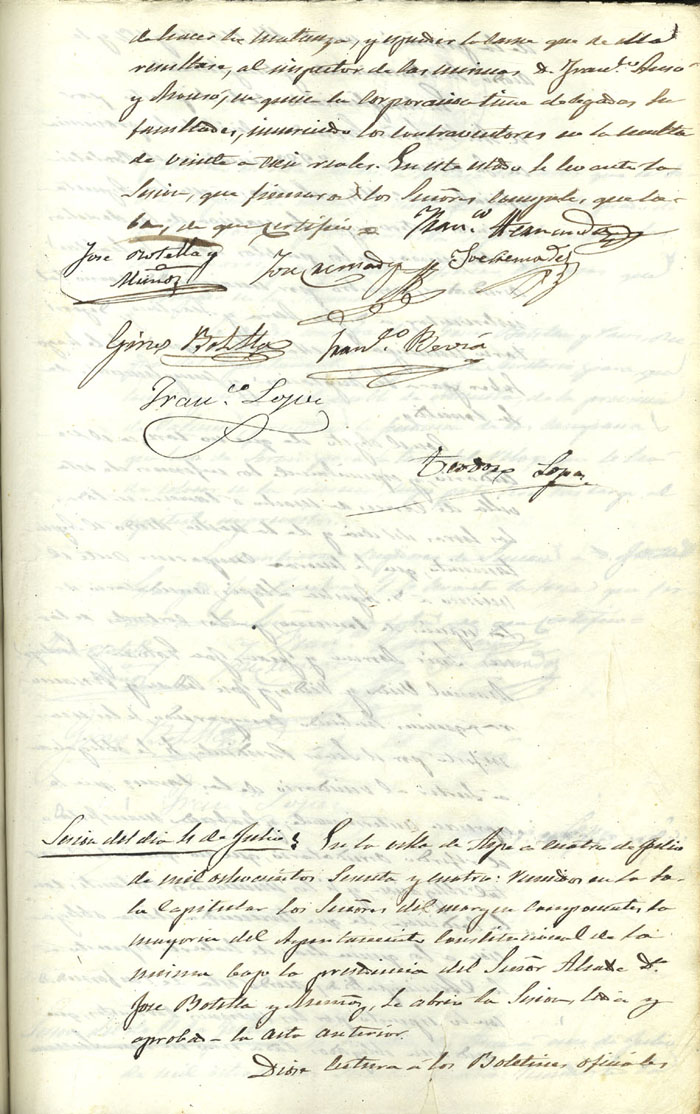 de hacer la matanza, y expender la carne que de ella
resultare, al inspector de las mismas D. Fran.co
y Alonso, en quien la Corporacion tiene delegadas sus
facultades, incurriendo los contraventores en la multa
de veinte a cien reales. En este estado se levanto la
Sesion, que firmaron los Señores Concejales que sa-
ben, de que certifico =
Fran.co Hernandez
Jose Botella y
Muñoz
Jose
Ginés Botella
Fran.co Beviá
Fran.co Lopez
Teodoro Lopez
Sesion del dia 4 de Julio
En la villa de Aspe a cuatro de Julio
de mil ochocientos sesenta y cuatro: reunidos en la Sa-
la Capitular los Señores del margen componentes la
mayoria del Ayuntamiento Constitucional de la
misma bajo la presidencia del Señor Alcalde D.
Jose Botella y Muñoz, se abrio la Sesion, leida y
aprobada la acta anterior.
Diose lectura a los Boletines oficiales